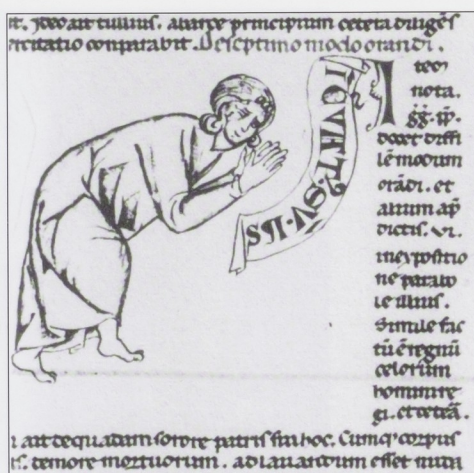 it. Ideo ait tullius. a uarce principium cetera diligēs
ercitatio conparabit. De septimo modo orandi.
Item
nota.
g̃g̃. ip̃.
docet diffi
lē modum
orādi. et
alium ap̃
dictis. vi.
in expositio
ne parabo
le illius.
Simile fac
tū ē regnū
celorum
homini re
gi. et ceteā.
ait de quadam sorore patris sui hoc. Cumq̃ corpus
timore mortuorum. ad lauandum esset nuda